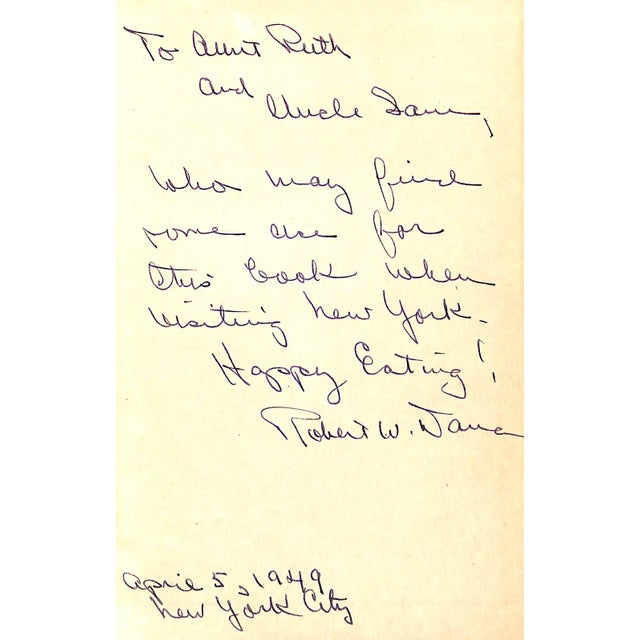 To Aunt Ruth
and
Uncle Sam,
who may find
some use for
this book when
visiting New York.
Happy Eating!
Robert W. Dana
April 5, 1949
New York City